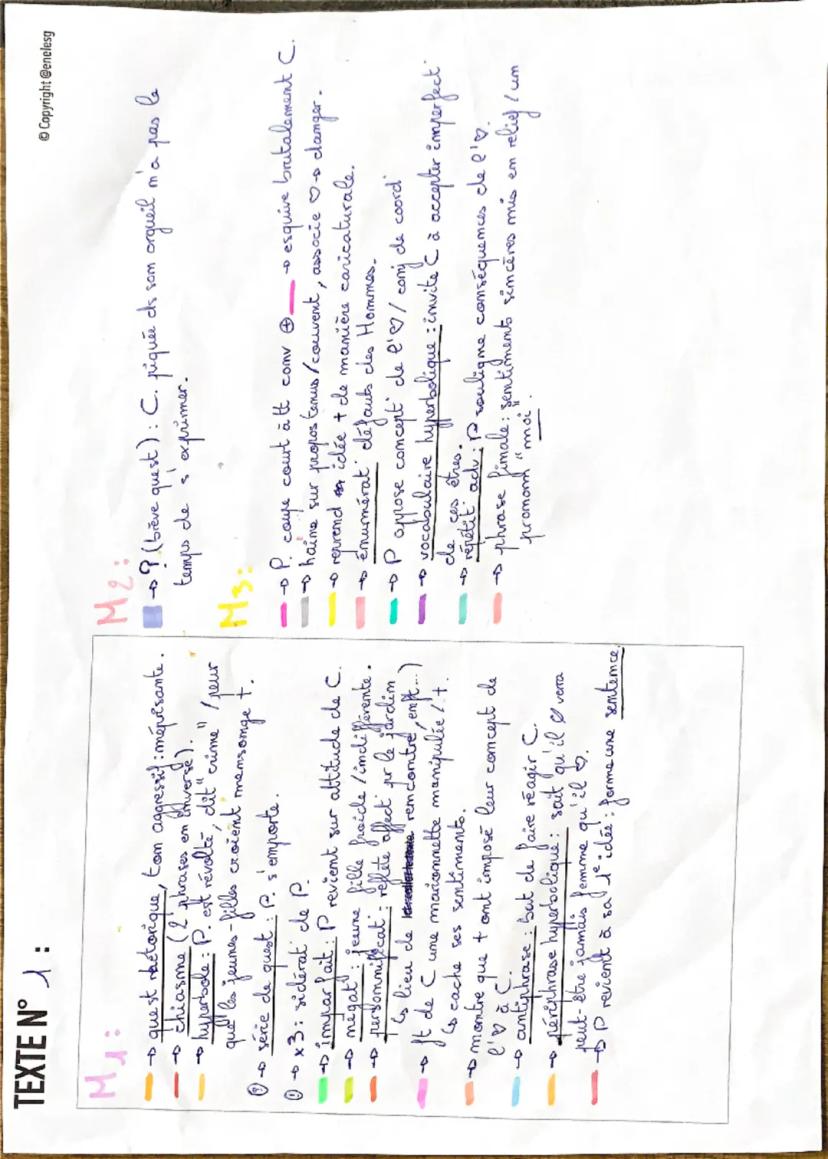 © Copyright @enelesg
TEXTE N° 1 :
M1 :
→ quest° rhétorique, ton aggressif : méprisante.
→ chiasme (2 phrases en inverse).
→ hyperbole : P. est révolté, dit "crime" / peur
que les jeunes-filles croient mensonge +.
? → série de quest° : P. s'emporte.
! → x3 : sidérat° de P.
→ imparfait : P revient sur attitude de C.
→ négat° : jeune fille froide / indifférente.
→ personnificat° : reflète affect° pr le jardin
↳ lieu de rencontre, enft...)
→ ft de C une marionnette manipulée / +.
↳ cache ses sentiments.
→ montre que + ont imposé leur concept de
l'♡ à C.
→ antiphrase : but de faire réagir C.
→ périphrase hyperbolique : sait qu'il ∅ verra
peut-être jamais femme qu'il ♡.
→ P revient à sa 1e idée : forme une sentence.
M2 :
→ ? (brève quest°) : C. piquée ds son orgueil n'a pas le
temps de s'exprimer.
M3 :
→ P. coupe court à tt conv ⊕ → esquive brutalement C.
→ haine sur propos tenus / couvent, associe ♡ → danger.
→ reprend idée + de manière caricaturale.
→ énumérat° défauts des Hommes.
→ P oppose concept° de l'♡ / conj de coord°
→ vocabulaire hyperbolique : invite C à accepter imperfect°
de ces êtres.
→ répétit° adv : P souligne conséquences de l'♡.
→ phrase finale : sentiments sincères mis en relief / un
pronom "moi".